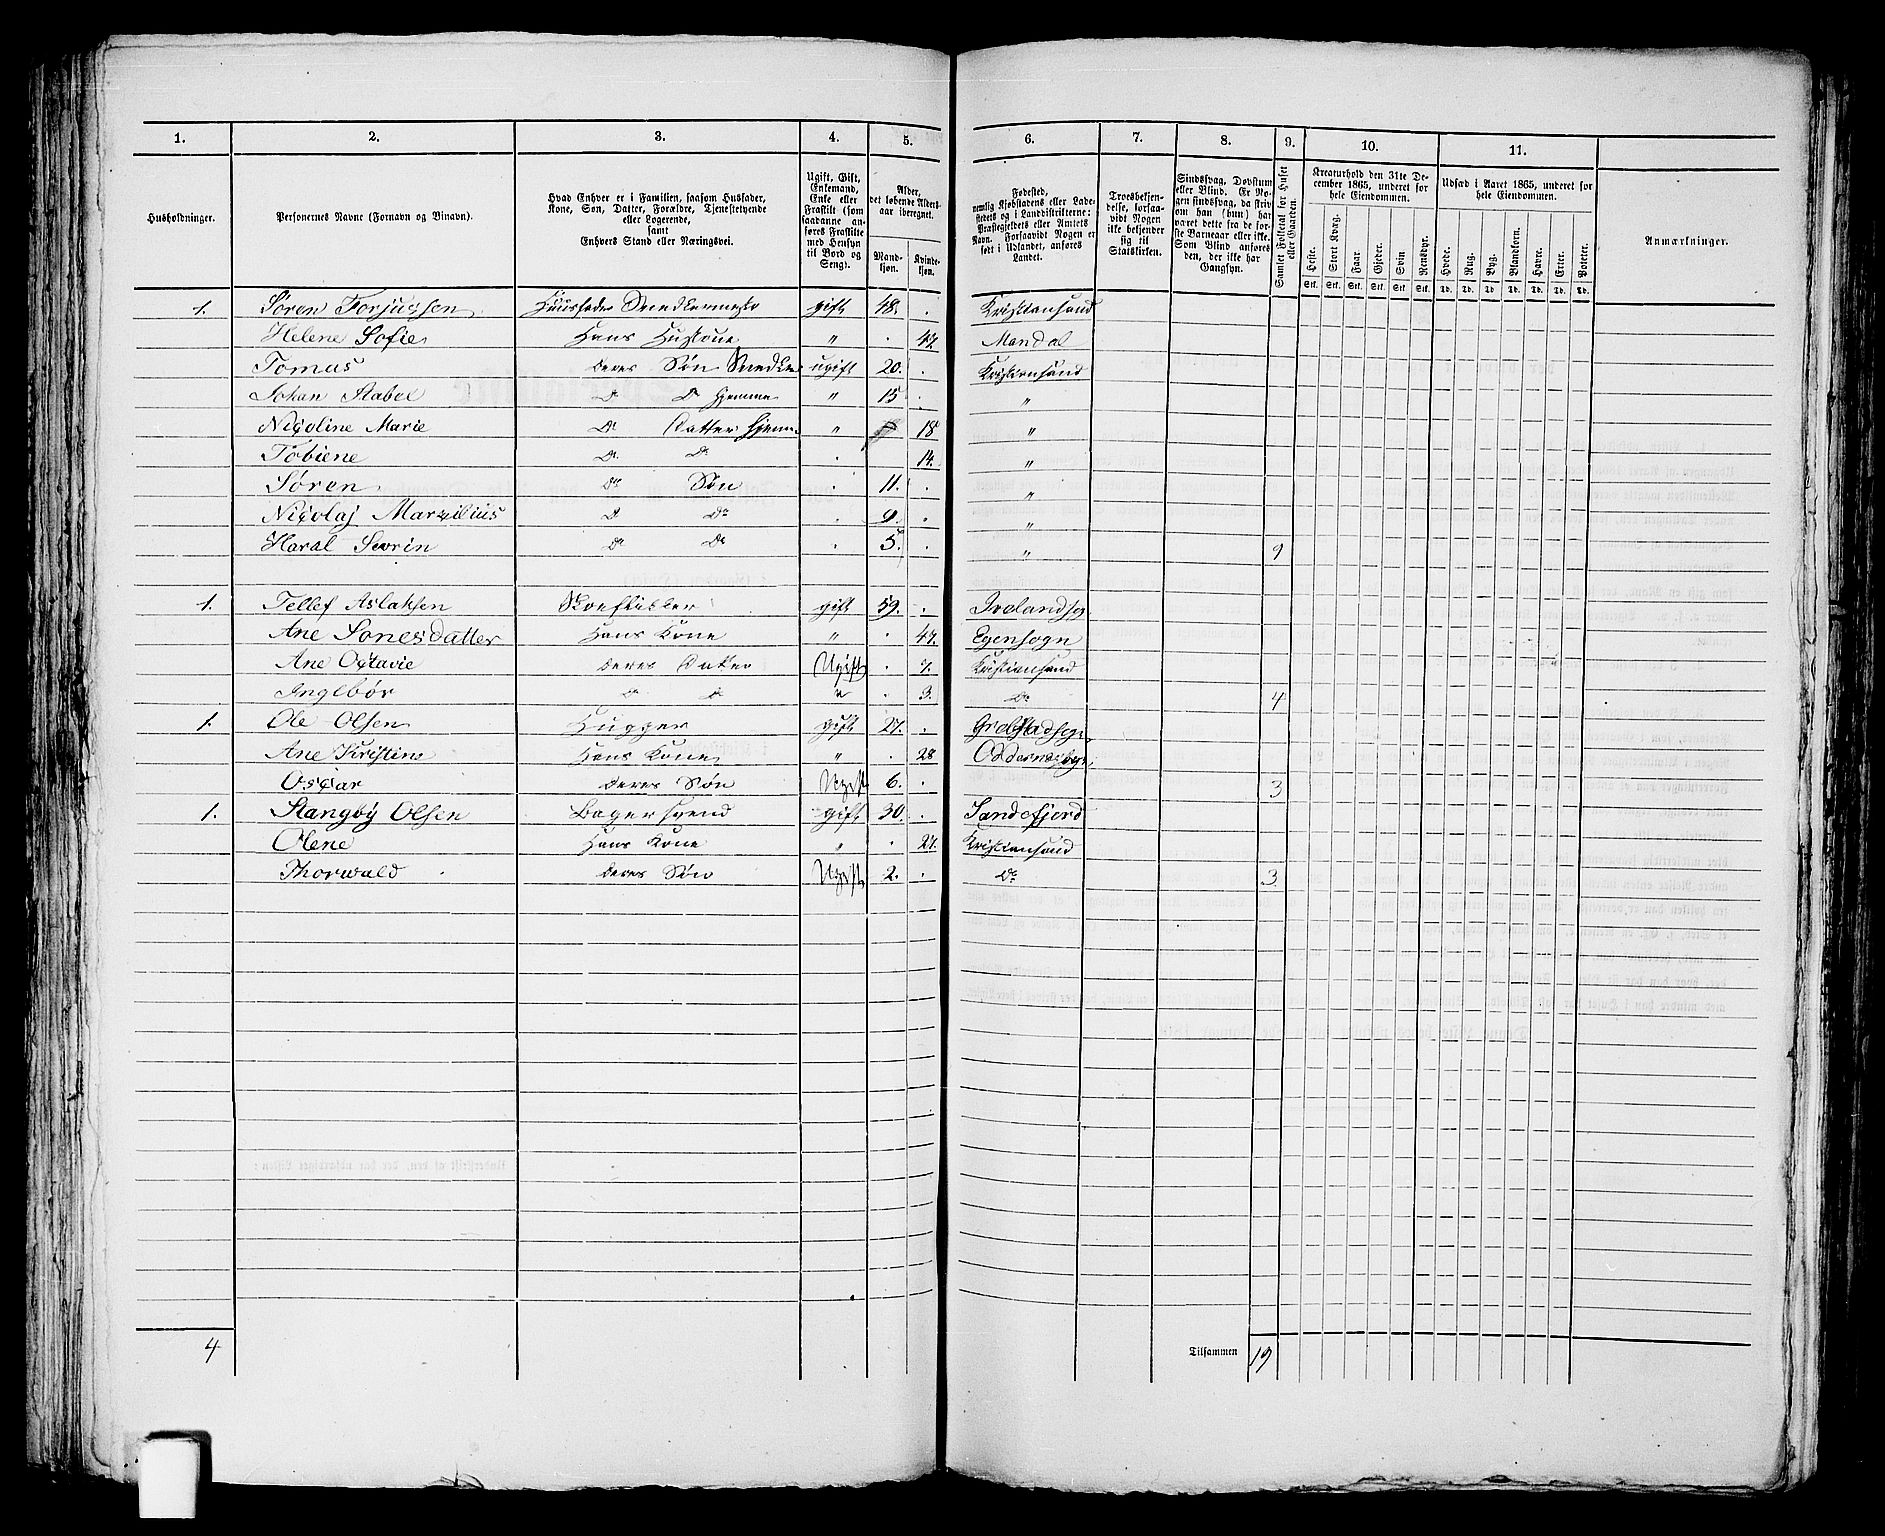 1. 2. 3. 4. 5. 6. 7. 8. 9. 10. 11.
Husholdninger.
Personernes Navne (Fornavn og Binavn).
Hvad Enhver er i Familien, saasom Husfader, Kone, Søn, Datter, Forældre, Tjenestetyende eller Logerende, samt Enhvers Stand eller Næringsvei.
Ugift, Gift, Enkemand, Enke eller Fraskilt (som saadanne anføres Fraskilte med Hensyn til Bord og Seng).
Alder, det løbende Aldersaar iberegnet.
Mandkjøn. Kvindekjøn.
Fødested, nemlig Kjøbstadens eller Ladestedets og i Landdistrikterne: Præstegjeldets eller Amtets Navn. Forsaavidt Nogen er født i Udlandet, anføres Landet.
Troesbekjendelse, forsaavidt Nogen ikke bekjender sig til Statskirken.
Sindssvag, Døvstum eller Blind. Er Nogen sindssvag, da skriv om han (hun) har været dette fra de første Barneaar eller ikke. Som Blind anføres den, der ikke har Gangsyn.
Samlet Folketal for Huset eller Gaarden.
Kreaturhold den 31te December 1865, underet for hele Eiendommen.
Heste. Stort Kvæg. Faar. Gjeder. Svin. Rensdyr.
Stk. Stk. Stk. Stk. Stk. Stk.
Udsæd i Aaret 1865, underet for hele Eiendommen.
Hvede. Rug. Byg. Blandkorn. Havre. Erter. Poteter.
Td. Td. Td. Td. Td. Td. Td.
Anmærkninger.
1. Søren Torjussen Huusfader Snedkermester gift 48. Kristiansand
Helene Sofie Hans Hustrue " 47. Mandal
Tomas deres Søn Snedker ugift 20. Kristiansand
Johan Stabel Do Do Hjemme " 15 "
Nicoline Marie Do Datter Hjemme " 18 "
Tobiene Do Do 14. "
Søren Do Søn 11. "
Nicolaj Marzilius D Do 9. "
Haral Sevrin Do Do 5. " 9
1. Tellef Aslaksen Skoeflikker gift 59. Ivelandsog
Ane Sonesdatter Hans Kone " 47. Egensogn
Ane Octavie deres Datter Ugift 7. Kristiansand
Ingebør Do Do " 3. Do 4
1. Ole Olsen Hugger gift 27.
Ane Kristine Hans Kone " 28
Oscar deres Søn Ugift 6. 3
1. Stangby Olsen Bagersvend gift 30. Sandefjord
Olene Hans Kone " 27. Kristiansand
Thorwald deres Søn Ugift 2. Do 3
4 Tilsammen 19